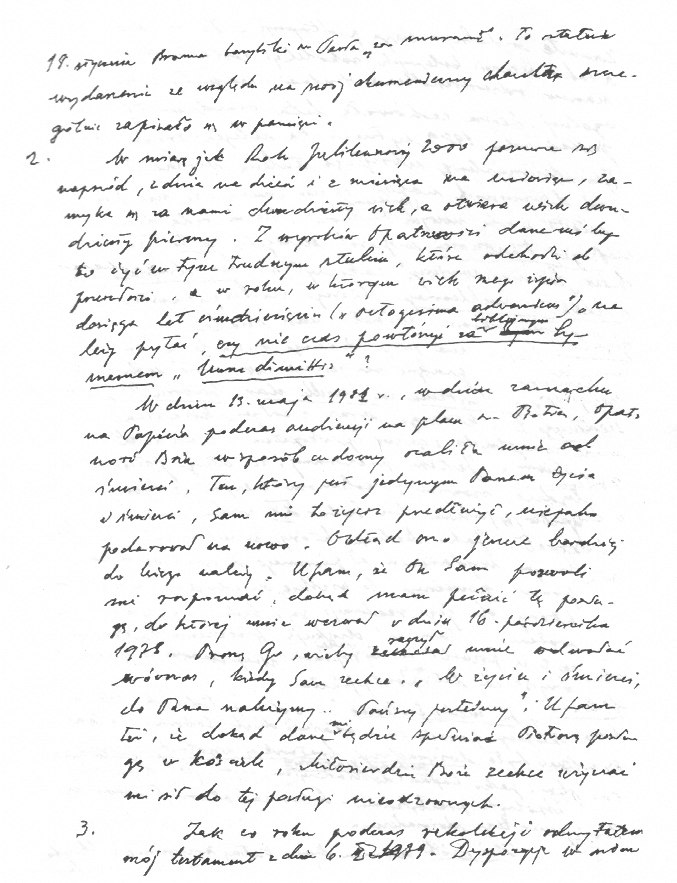 18. stycznia Brama bazyliki św. Pawła „za murami". To ostatnie
wydarzenie ze względu na swój ekumeniczny charakter szcze-
gólnie zapisało się w pamięci.
2. W miarę jak Rok Jubileuszowy 2000 posuwa się
naprzód, z dnia na dzień i z miesiąca na miesiąc, za-
myka się za nami dwudziesty wiek, a otwiera wiek dwu-
dziesty pierwszy. Z wyroków Opatrzności dane mi było
żyć w tym trudnym stuleciu, które odchodzi do
przeszłości, a w roku, w którym wiek mego życia
dosięga lat osiemdziesięciu („octogesima adveniens"), na-
leży pytać, czy nie czas powtórzyć za biblijnym Sy-
meonem „Nunc dimittis"?
W dniu 13. maja 1981 r., w dniu zamachu
na Papieża podczas audiencji na placu św. Piotra, Opatrz-
ność Boża w sposób cudowny ocaliła mnie od
śmierci. Ten, który jest jedynym Panem życia
i śmierci, Sam mi to życie przedłużył, niejako
podarował na nowo. Odtąd ono jeszcze bardziej
do Niego należy. Ufam, że On Sam pozwoli
mi rozpoznać, dokąd mam pełnić tę posłu-
gę, do której mnie wezwał w dniu 16. października
1978. Proszę Go, ażeby raczył mnie odwołać
wówczas, kiedy Sam zechce. „W życiu i śmierci,
do Pana należymy... Pańscy jesteśmy". Ufam
też, iż dokąd dane mi będzie spełniać Piotrową posłu-
gę w Kościele, Miłosierdzie Boże zechce użyczać
mi sił do tej posługi nieodzownych.
3. Jak co roku podczas rekolekcji odczytałem
mój testament z dnia 6. III 1979. Dyspozycje w nim